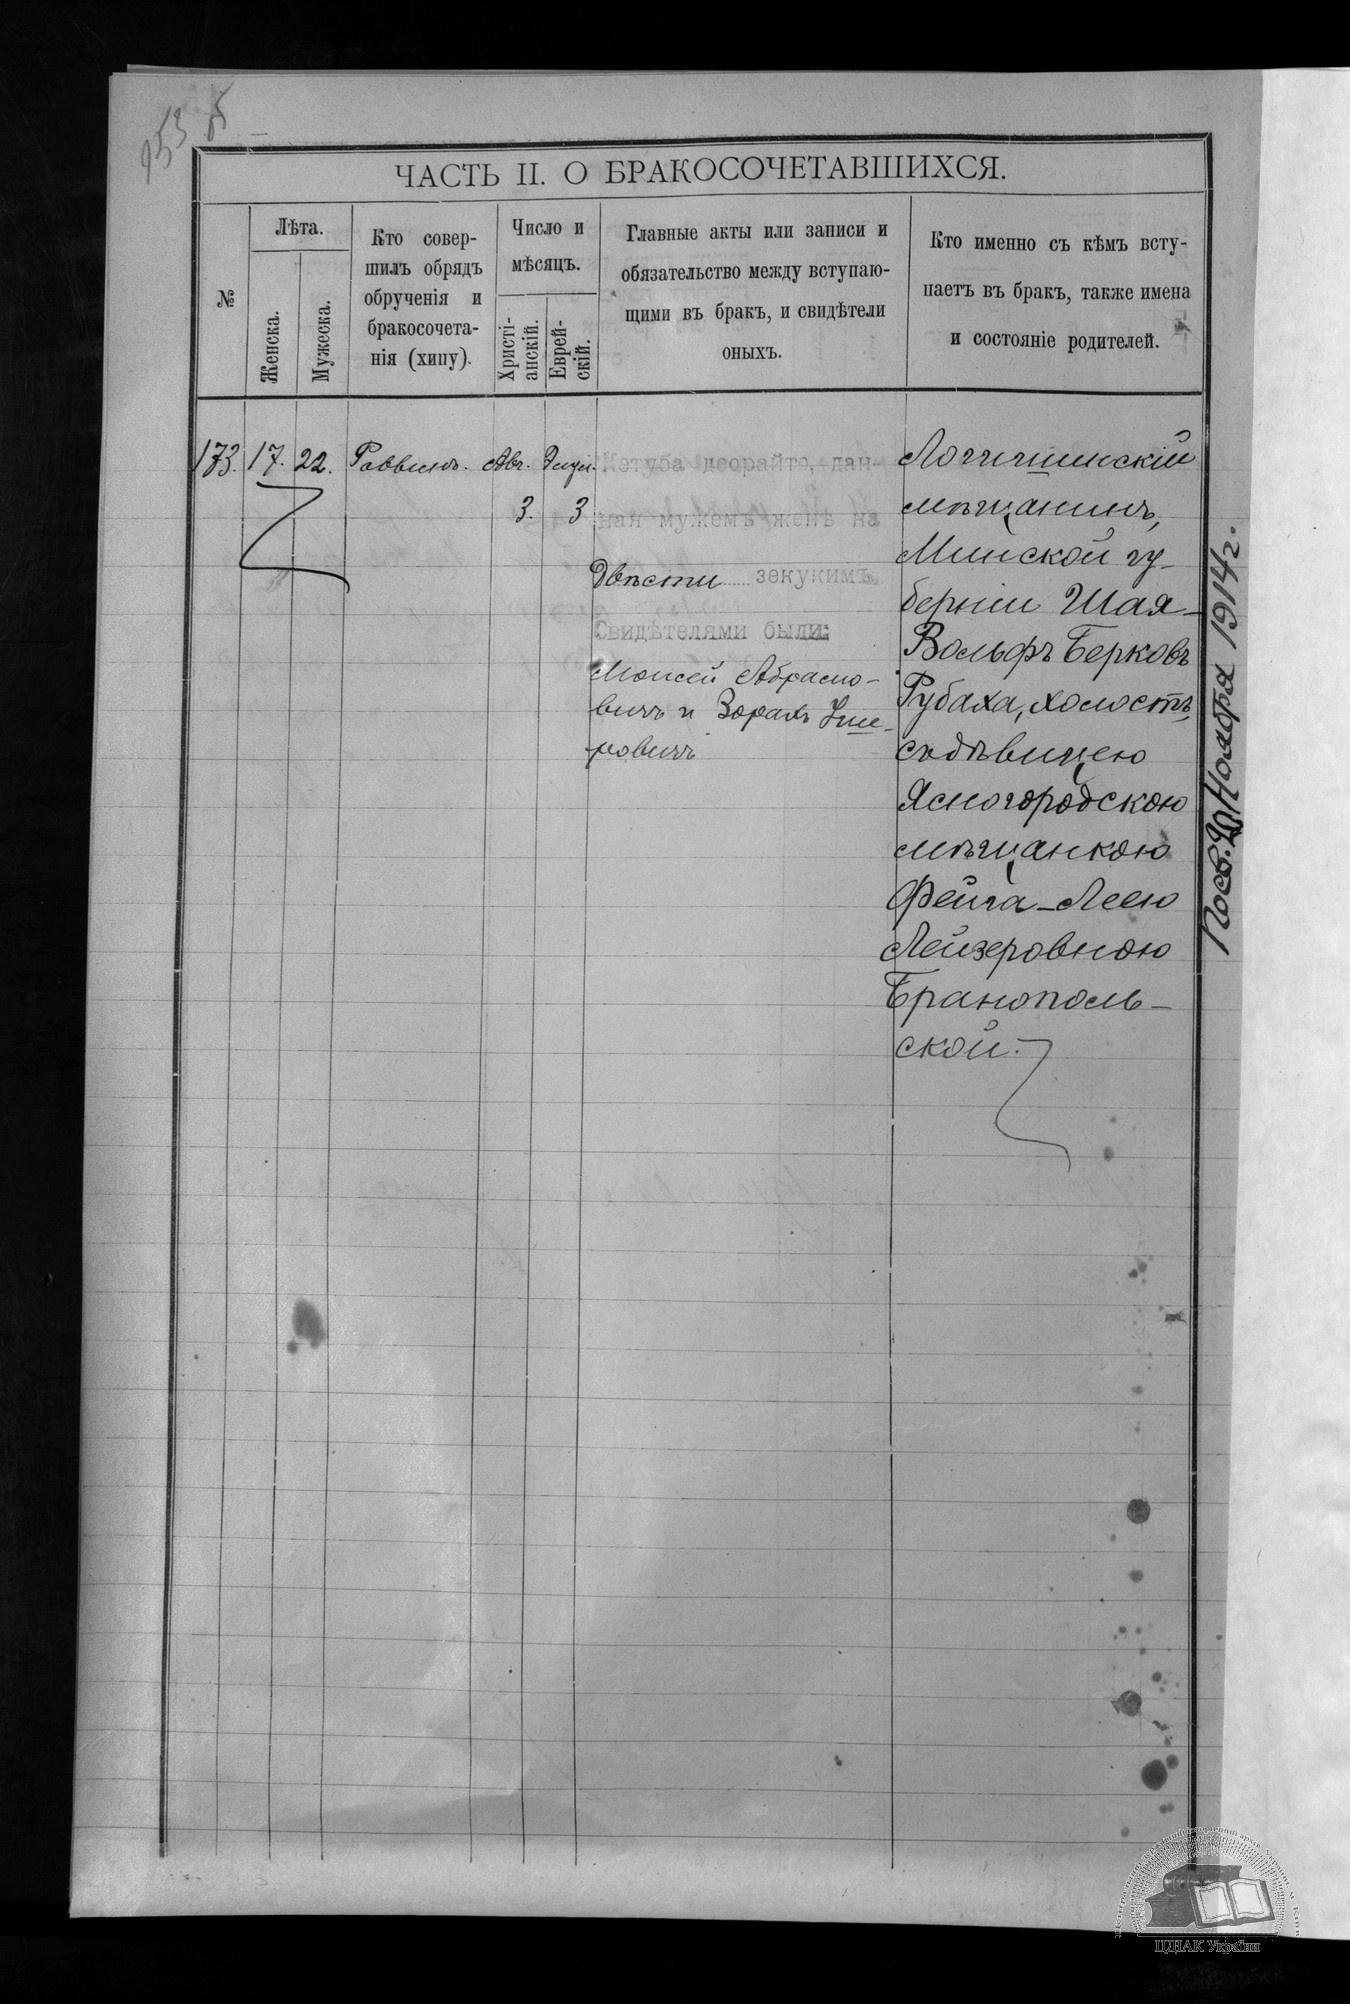 953
ЧАСТЬ II. О БРАКОСОЧЕТАВШИХСЯ.
№
Лѣта.
Женска.
Мужеска.
Кто совер-
шилъ обрядъ
обрученія и
бракосочета-
нія (хипу).
Число и
мѣсяцъ.
Христі-
анскій.
Еврей-
скій.
Главные акты или записи и
обязательство между вступаю-
щими въ бракъ, и свидѣтели
оныхъ.
Кто именно съ кѣмъ всту-
паетъ въ бракъ, также имена
и состояніе родителей.
173. 17. 22. Раввинъ. Авг. Элул.
3. 3
Кетуба деорайте, дан-
ная мужемъ женѣ на
двѣсти зекукимъ
Свидѣтелями были:
Моисей Абрамо-
вичъ и Зорахъ
ровичъ
Логишинскій
мѣщанинъ,
Минской гу-
берніи Шая-
Вольфъ Берковъ
Рубаха, холостъ,
съ дѣвицею
Ясногородскою
мѣщанкою
Фейга-Леею
Лейзеровною
Бранополь-
ской.
Ноября 1914 г.
ЦДІАК України